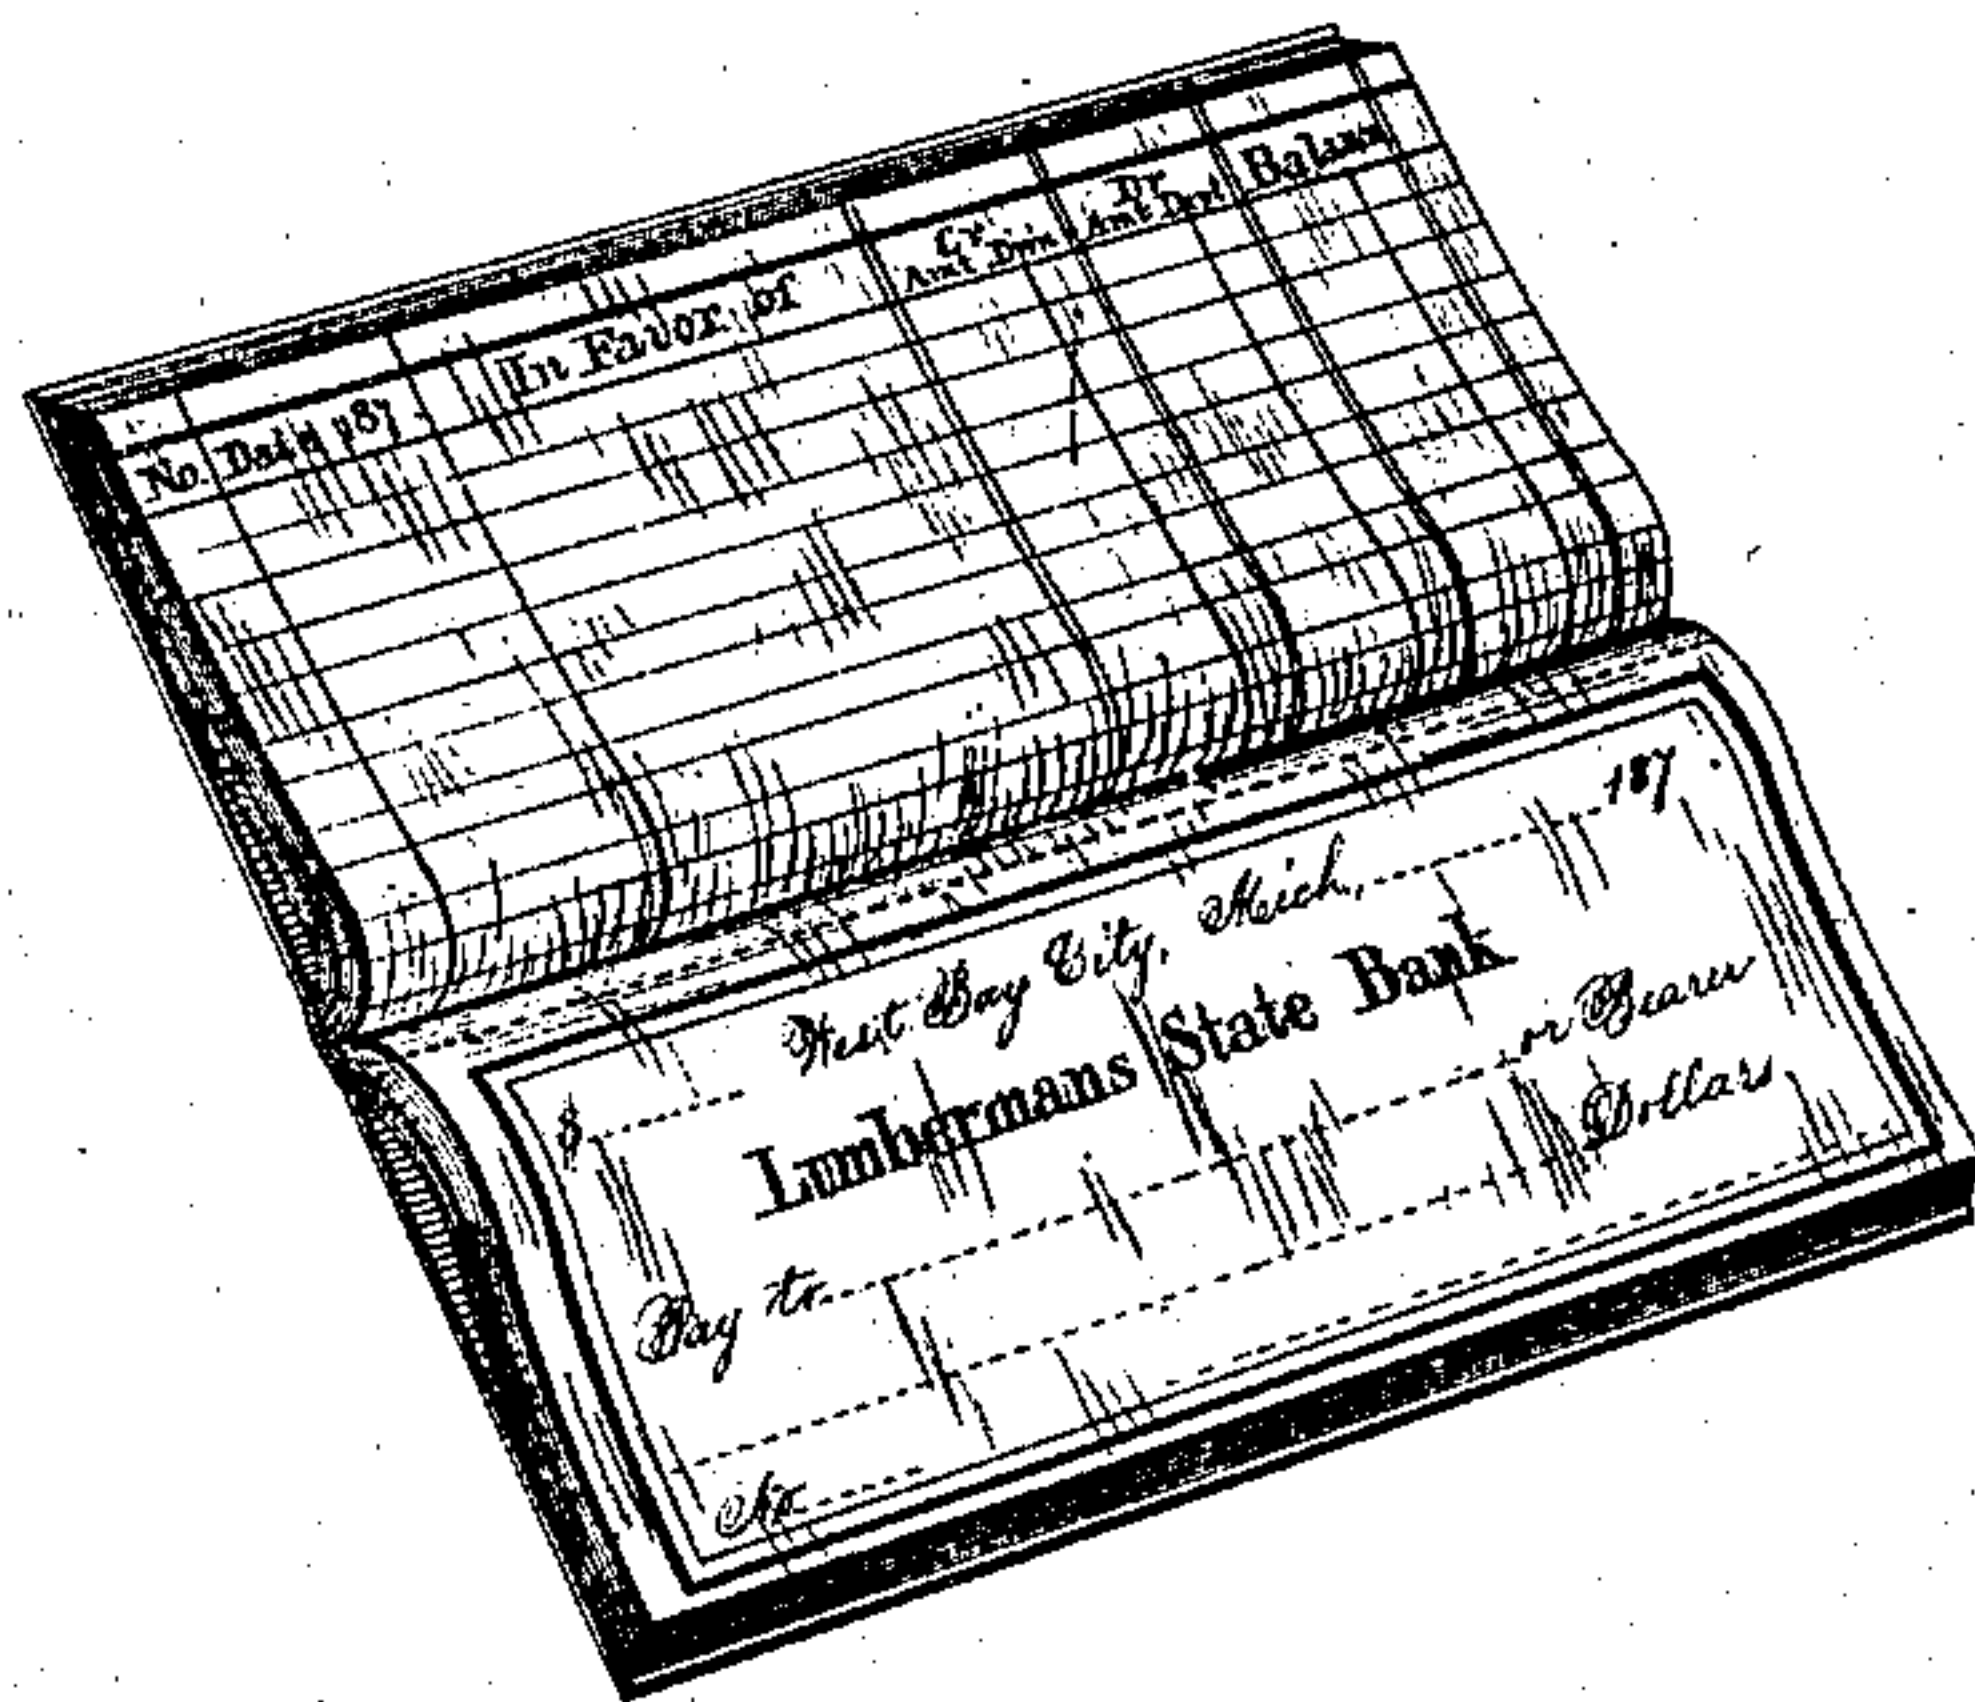 No. Date 187 In Favor of Cr. Amt Drn Dr. Amt Dpt Balance
West Bay City, Mich, 187
$
Lumbermans State Bank
Pay to or Bearer
Dollars
No